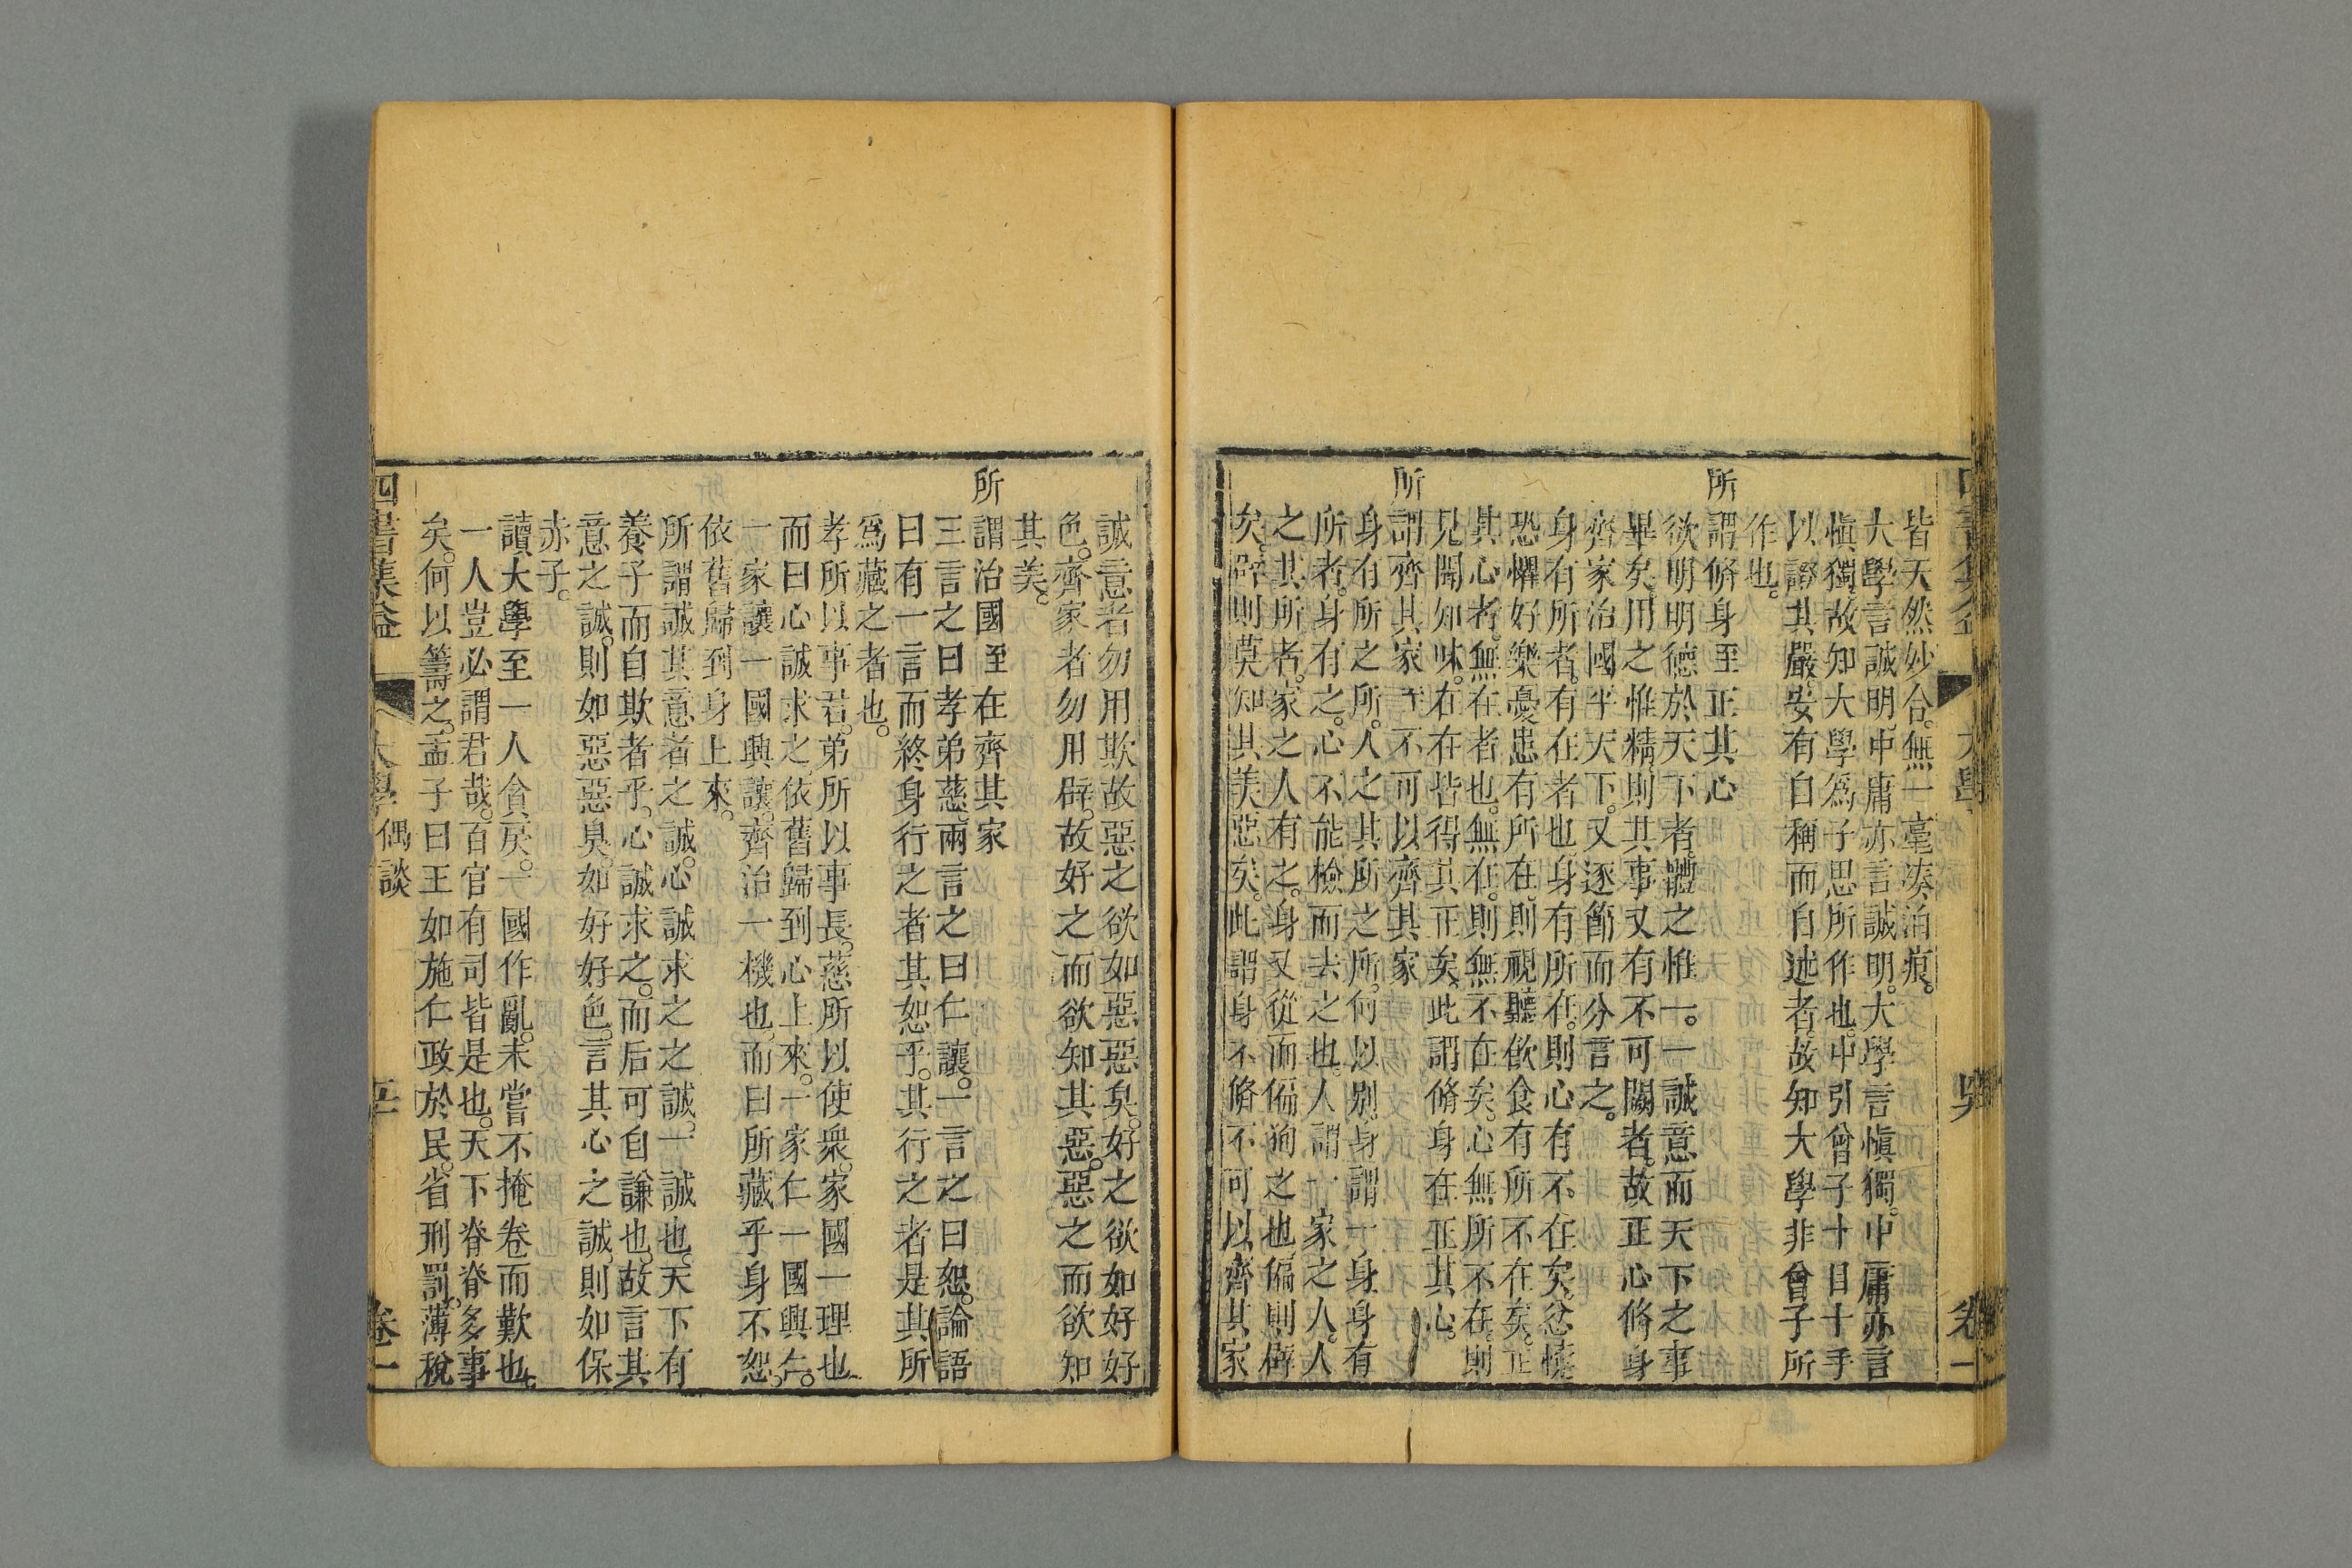 皆天然妙合。無一毫湊泊痕。
大學言誠明。中庸亦言誠明。大學言愼獨。中庸亦言
愼獨。故知大學爲子思所作也。中引曾子十目十手
以證其嚴。安有自稱而自述者。故知大學非曾子所
作也。
所謂脩身至正其心
欲明明德於天下者。體之惟一。一誠意而天下之事
畢矣。用之惟精。則其事又有不可闕者。故正心脩身
齊家治國平天下。又逐節而分言之。
身有所者。有在者也。身有所在。則心有不在矣。忿懥
恐懼好樂憂患有所在。則視聽飲食有所不在矣。正
其心者。無在者也。無在。則無不在矣。心無所不在。則
見聞知味。在在皆得其正矣。此謂脩身在正其心。
所謂齊其家至不可以齊其家
身有所之所。人之其所之所。何以別。身謂一身。身有
所者。身有之。心不能檢而去之也。人謂一家之人。人
之其所者。家之人有之。身又從而偏狥之也。偏則僻
矣。辟則莫知其美惡矣。此謂身不脩不可以齊其家
四書集益 大學 卷一
誠意者勿用欺故惡之欲如惡惡臭。好之欲如好好
色。齊家者勿用辟。故好之而欲知其惡。惡之而欲知
其美。
所謂治國至在齊其家
三言之曰孝弟慈。兩言之曰仁讓。一言之曰恕。論語
曰有一言而終身行之者其恕乎。其行之者是其所
爲藏之者也。
孝所以事君。弟所以事長。慈所以使衆。家國一理也
而曰心誠求之。依舊歸到心上來。一家仁一國興仁。
一家讓一國興讓。齊治一機也。而曰所藏乎身不恕。
依舊歸到身上來。
所謂誠其意者之誠。心誠求之之誠。一誠也。天下有
養子而自欺者乎。心誠求之。而后可自謙也。故言其
意之誠。則如惡惡臭。如好好色。言其心之誠。則如保
赤子。
讀大學至一人貪戾。一國作亂。未嘗不掩卷而歎也。
一人豈必謂君哉。百官有司皆是也。天下脊脊多事
矣。何以籌之。孟子曰王如施仁政於民。省刑罰。薄稅
四書集益 大學 偶談 五 卷一